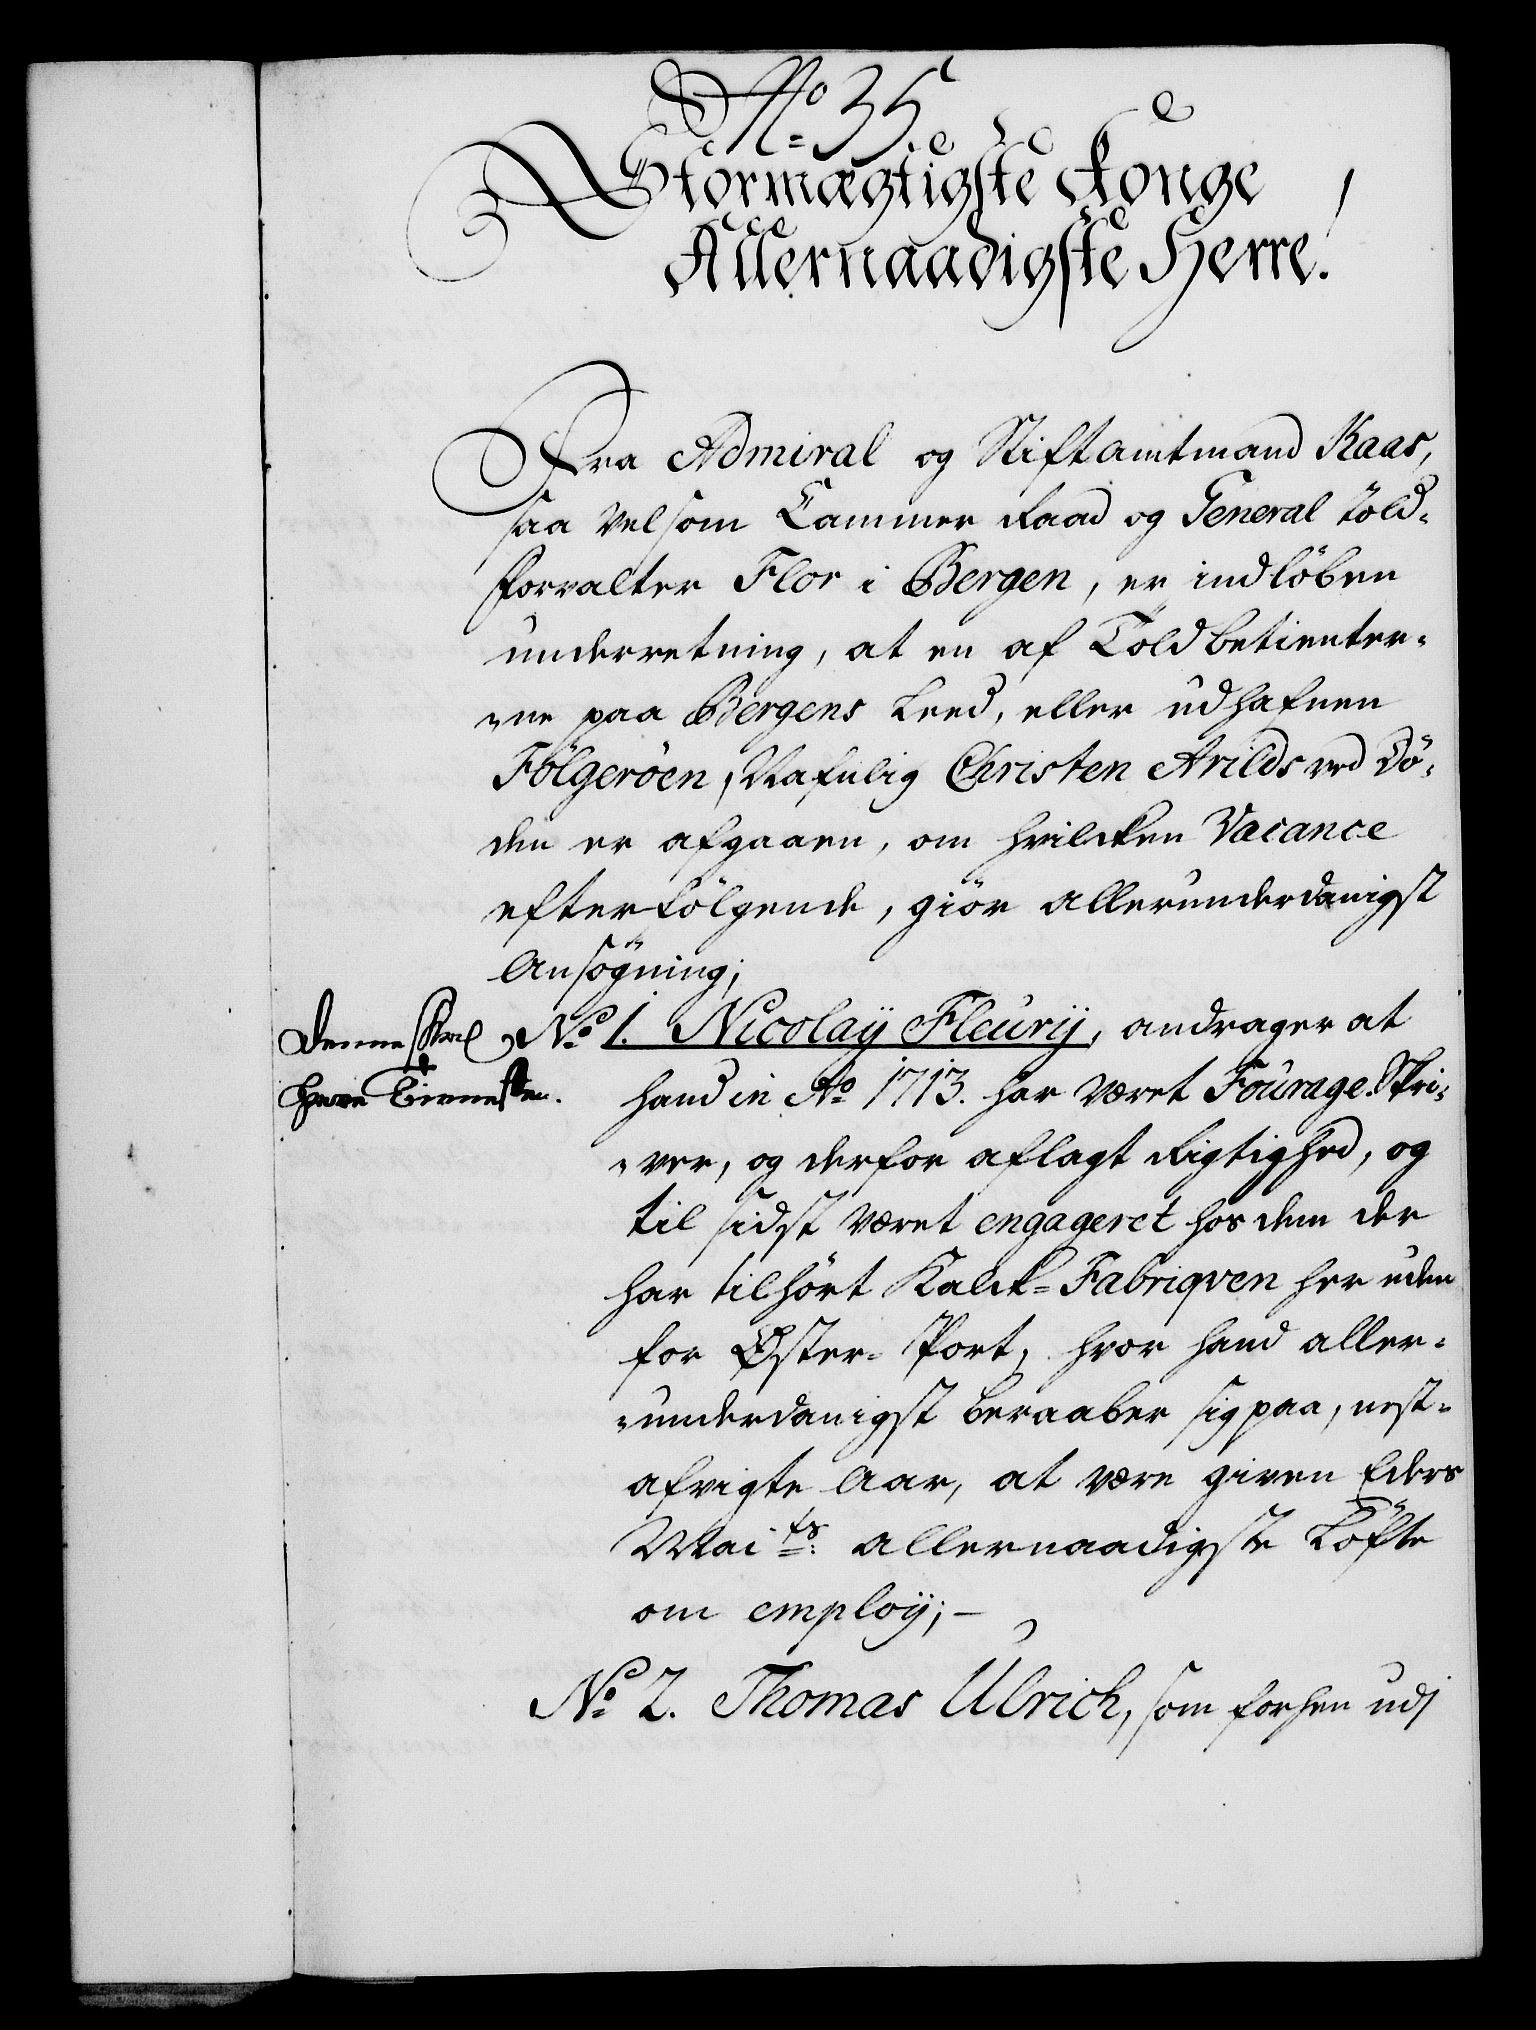 No 35
Stormægtigste Konge
Allernaadigste Herre!
Fra Admiral og Stiftamtmand Kaas,
saa velsom Cammer Raad og General told-
forvalter Flor i Bergen, er indlöben
underretning, at en af Toldbetienter-
ne paa Bergens Leed, eller udhafnen
Fölgeröen, Nafnlig Christen Arilds ved Dö-
den er afgaaen, om hvilcken Vacance
efterfölgende, giör allerunderdanigst
Ansögning;
Denne skal
have Tienesten.
No 1. Nicolaÿ Fleurÿ, andrager at
hand in Ao 1713. har været Fourage-Skri-
ver, og derfor aflagt Rigtighed, og
til sidst været engageret hos dem der
har tilhört Kalck-Fabriqven her uden
for Øster-Port, hvor hand aller-
underdanigst beraaber sig paa, nest-
afvigte Aar, at være given Eders
Maits allernaadigste Löfte
om employ;-
No 2. Thomas Ulrich, som forhen udj